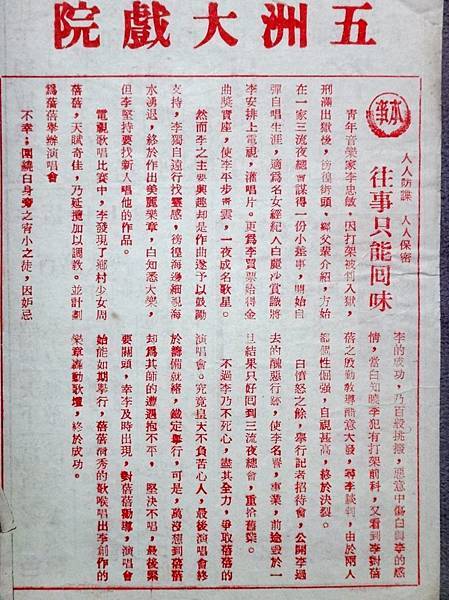 五洲大戲院
本事
人人防諜 人人保密
往事只能回味
青年音樂家李忠敏，因打架被判入獄，
刑滿出獄後，徬徨街頭，經父輩介紹，方始
在一家三流夜總會謀得一份小差事，開始自
彈自唱生涯，適為名女經紀人白麗沙賞識將
李安排上電視，灌唱片。更為李買票給得金
曲獎寶座，使李平步青雲，一夜成名歌星。
然而李之主要興趣却是作曲遂予以鼓勵
支持，李獨自遠行找靈感，徬徨海邊細視海
水湧退，終於作出美麗樂章，白知悉大樂，
但李堅持要找新人唱他的作品。
電視歌唱比賽中，李發現了鄉村少女周
蓓蓓，天賦奇佳，乃延攬加以調教。並計劃
為蓓蓓舉辦演唱會
不幸；圍繞白身旁之宵小之徒，因妒忌
李的成功，乃百般挑撥，惡意中傷白與李的感
情，當白知曉李犯有打架前科，又看到李對蓓
蓓之殷勤教導醋意大發，尋李談判，由於兩人
都個性倔强，自視甚高，終於決裂。
白憤怒之餘，舉行記者招待會，公開李過
去的醜惡行跡，使李名譽，事業，前途毀於一
旦結果只好回到三流夜總會，重拾舊業。
不過李乃不死心，盡其全力，爭取蓓蓓的
演唱會。究竟皇天不負苦心人，最後演唱會終
於籌備就緒，鐵定舉行，可是，萬沒想到蓓蓓
却為其師的遭遇抱不平，堅決不唱，最後緊
要關頭，幸李及時出現，對蓓蓓勸導，演唱會
始能如期舉行，蓓蓓清秀的歌喉唱出李創作的
樂章轟動歌壇，終於成功。